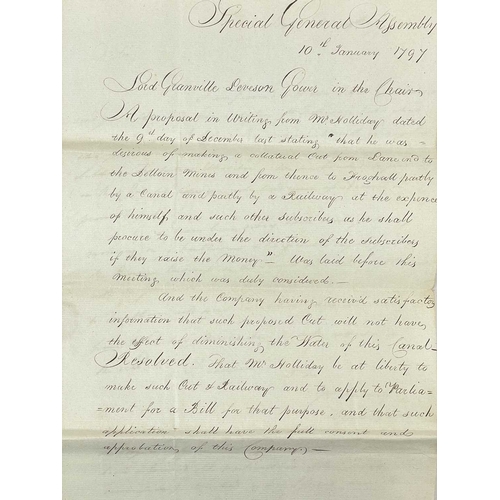 Special General Assembly
10th January 1797
Lord Granville Leveson Gower in the Chair
A proposal in Writing from Mr Holliday dated
the 9th day of December last stating "that he was
desirous of making a collateral Cut from Lane end to
the Mines and from thence to Froghall partly
by a Canal and partly by a Railway at the expence
of himself and such other Subscribers as he shall
procure to be under the direction of the Subscribers
if they raise the Money" – Was laid before this
Meeting which was duly considered. –
And the Company having receiv'd satisfacto
information that such proposed Cut will not have
the effect of diminishing the Water of this Canal
Resolved. That Mr Holliday be at liberty to
make such Cut & Railway and to apply to Parlia=
=ment for a Bill for that purpose, and that such
application shall have the full consent and
approbation of this Company. –